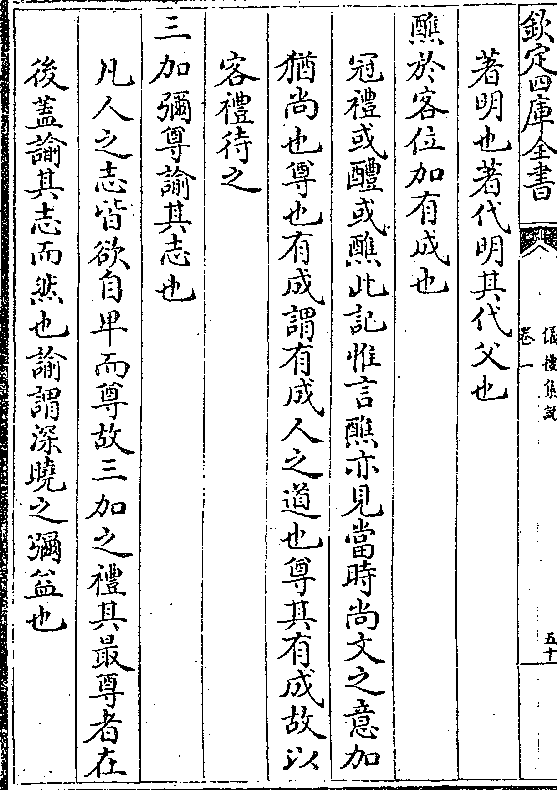 欽定四庫全書
儀禮集說
卷一
五十
著明也著代明其代父也
醮於客位加有成也
冠禮或醴或醮此記惟言醮亦見當時尚文之意加
猶尚也尊也有成謂有成人之道也尊其有成故以
客禮待之
三加彌尊諭其志也
凡人之志皆欲自卑而尊故三加之禮其最尊者在
後蓋諭其志而然也諭謂深曉之彌益也